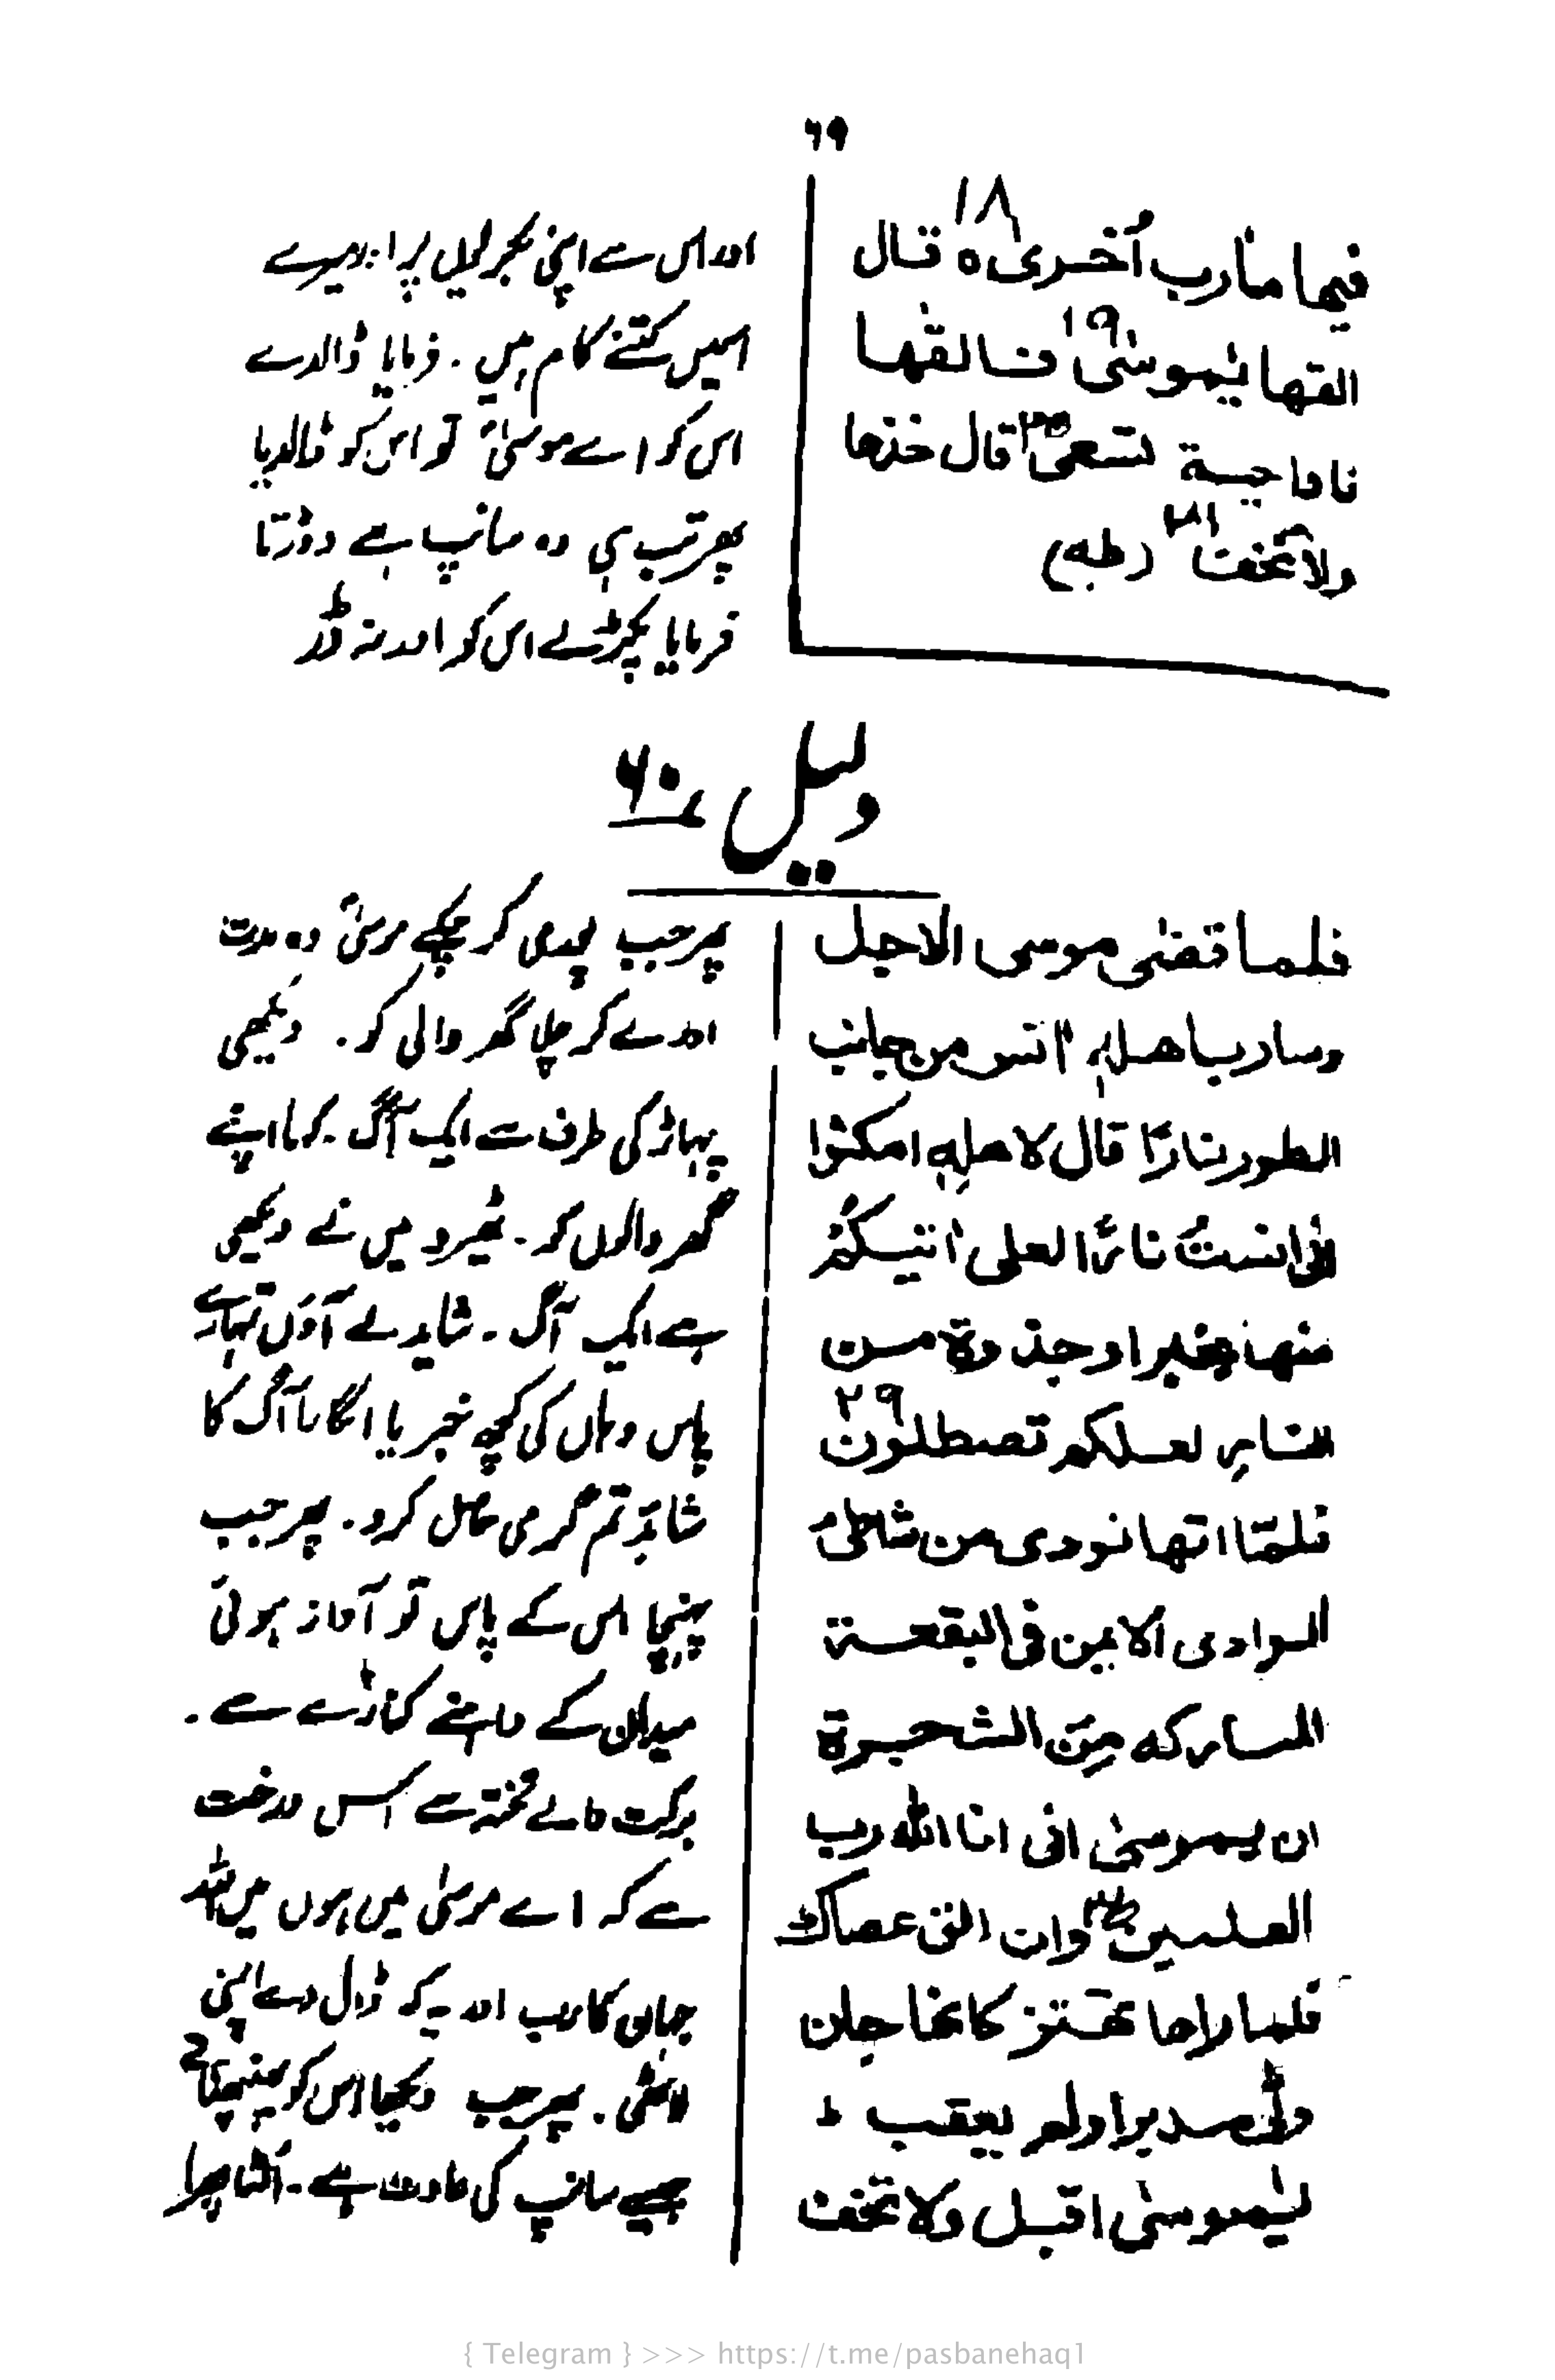 ۶۹
فیها مٰارب اُخریٰ ۱۸ ه قال
القها یٰموسیٰ ۱۹ فالقٰها
فاذا حیة تسعیٰ ۲۰ قال خذها
ولا تخف ۲۱ (طٰهٰ)
اور اس سے اپنی بکریوں پر اور میرے
اسمیں کتنے کام ہیں۔ فرمایا ڈالدے
اس کو اے موسیٰؑ تو اس کو ڈالدیا
پھر تب ہی وہ سانپ ہے دوڑتا
فرمایا پکڑلے اس کو اور نہ ڈر
دلیل ۶۰
فلما قضٰی موسی الاجل
وسار باهلہٖ اٰنس من جانب
الطور نارًا قال لاهلہٖ امکثوا
انی اٰنستُ نارًا لعلی اٰتیکُم
منها بخبر او جذوة من
النار لعلکم تصطلون ۲۹
فلمّا اتٰها نودی من شاطئ
الوادی الایمن فی البقعة
المبارکه مِنَ الشجرة
ان یٰموسیٰ انی انا اللّٰه رب
العلمین ۳۰ وان الق عصاک
فلما راها تهتز کانها جان
ولّٰی مدبرا ولم یعقب ط
یٰموسیٰ اقبل ولا تخف
پھر جب پوری کر چکے موسیٰؑ وہ مدت
اور لے کر چلا گھر والی کو۔ دیکھی
پہاڑ کی طرف سے ایک آگ۔ کہا اپنے
گھر والوں کو۔ ٹھیرو میں نے دیکھی
ہے ایک آگ۔ شاید لے آؤں تمہارے
پاس وہاں کی کچھ خبر یا انگارا آگ کا
شاید تم گرمی حاصل کرو۔ پھر جب
پہنچا اس کے پاس تو آواز ہوئی
میدان کے داہنے کنارے سے۔
برکت والے تختہ سے اس درخت
سے کہ اے موسیٰ میں ہوں میں اللہ
جہان کا رب اور یہ کہ ڈال دے اپنی
لاٹھی۔ پھر جب دیکھا اس کو پھنپھناتے
جیسے سانپ کی عادت ہے۔ الٹا پھرا
{ Telegram } >>> https://t.me/pasbanehaq1